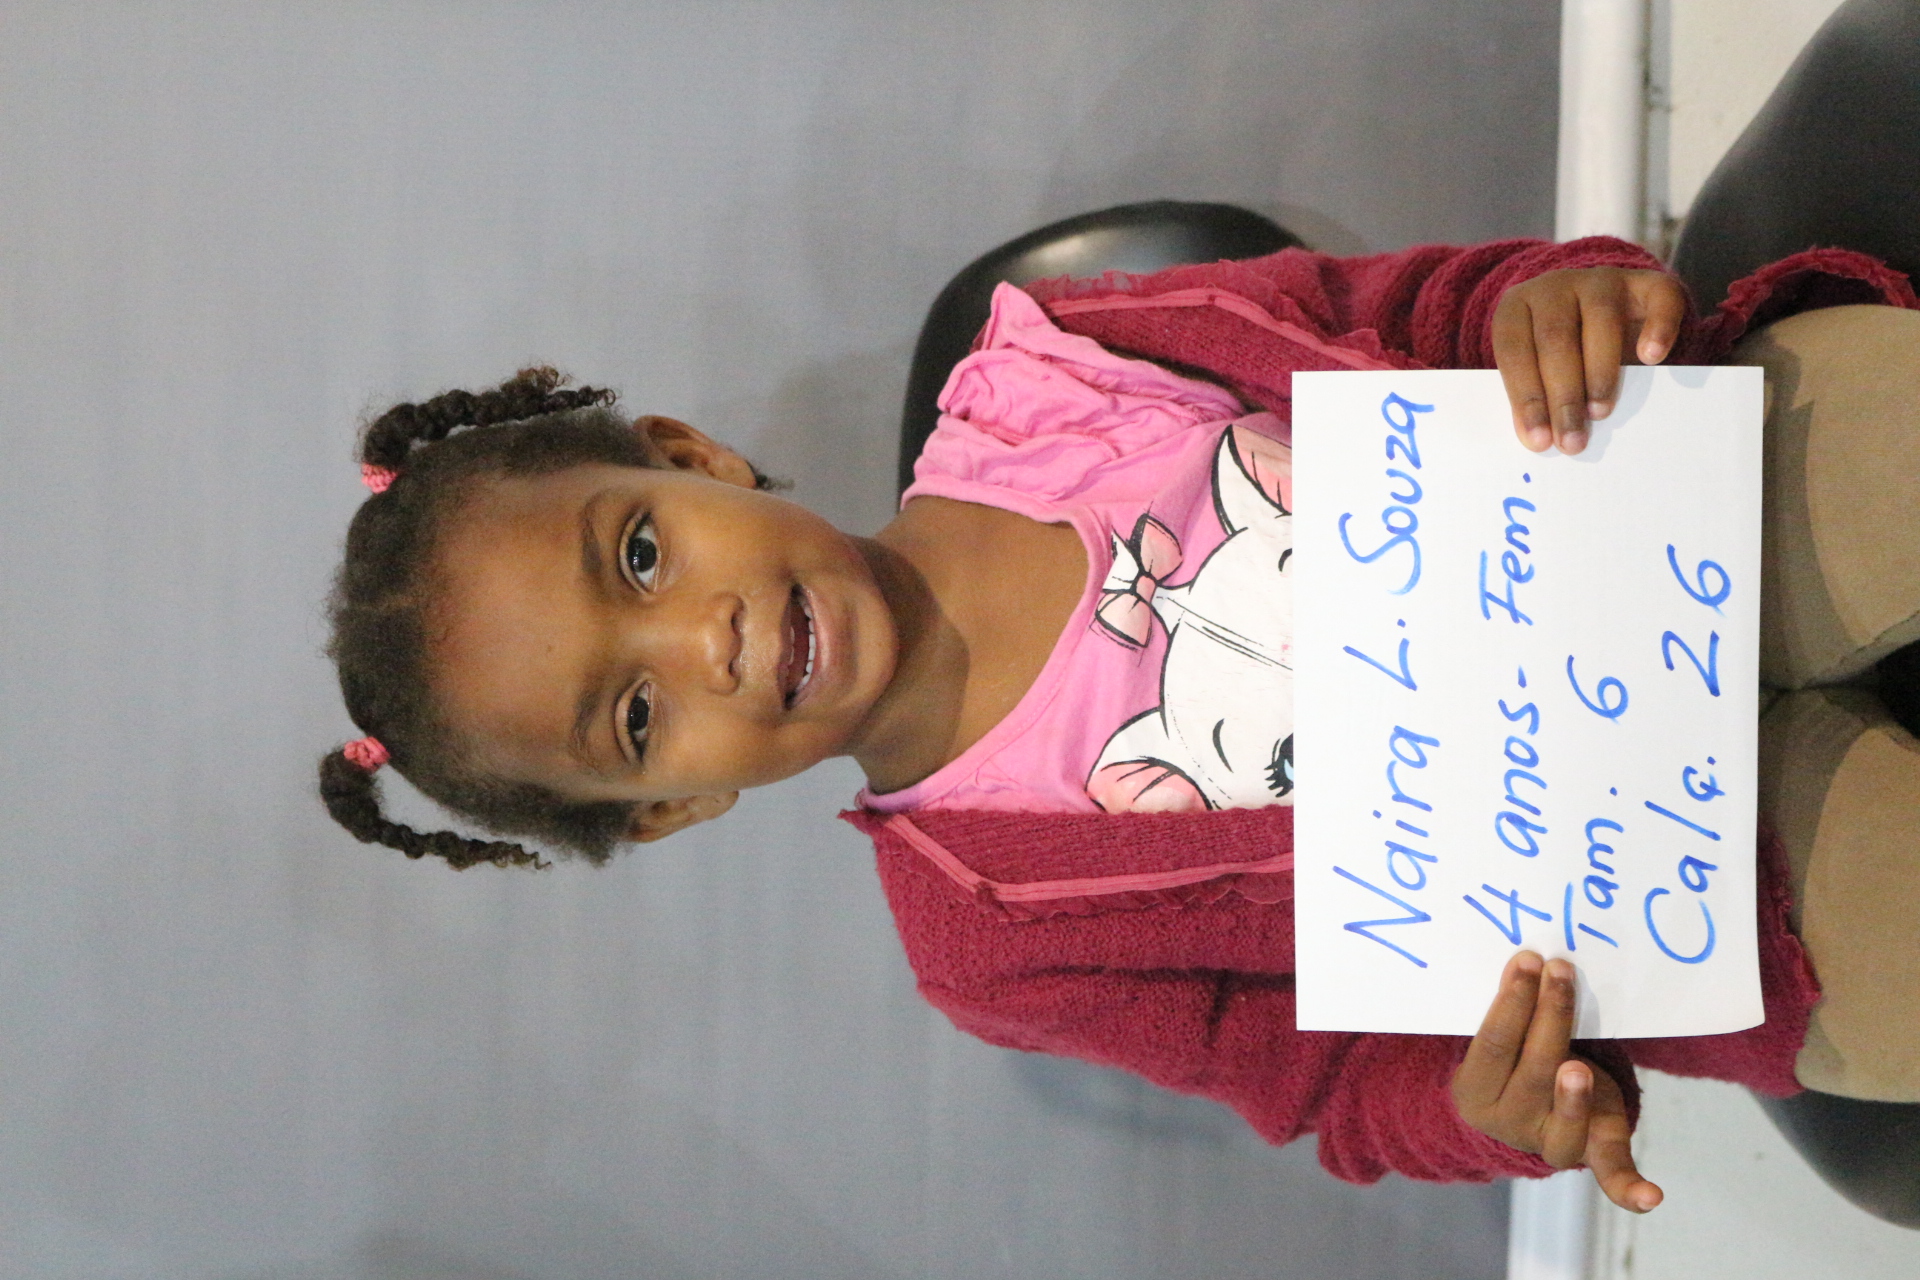 Naira L. Souza
4 anos - Fem.
Tam. 6
Calç. 26